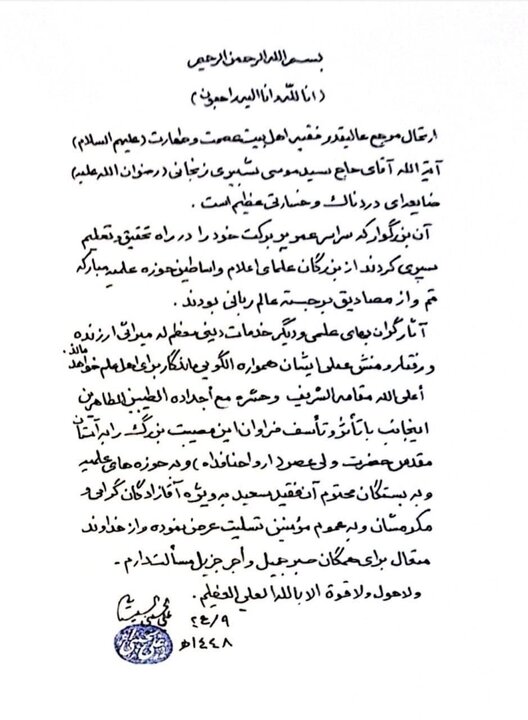 بسم الله الرحمن الرحیم
(انا لله وانا الیه راجعون)
ارتحال مرجع عالیقدر فقیه اهل بیت عصمت وطهارت (علیهم السلام)
آیة الله آقای حاج سید موسی شبیری زنجانی (رضوان الله علیه)
ضایعه‌ای دردناک وخسارتی عظیم است .
آن بزرگوار که سراسر عمر پر برکت خود را در راه تحقیق وتعلیم
سپری کردند از بزرگان علمای اعلام واساطین حوزه علمیه مبارکه
قم واز مصادیق برجسته عالم ربانی بودند .
آثار گران بهای علمی ودیگر خدمات دینی معظم له میراثی ارزنده
ورفتار ومنش عملی ایشان همواره الگویی ماندگار برای اهل علم خواهد ماند.
أعلی الله مقامه الشریف وحشره مع أجداده الطیبین الطاهرین
اینجانب با تأثر وتأسف فراوان این مصیبت بزرگ را به آستان
مقدس حضرت ولی عصر (ارواحنا فداه) وبه حوزه های علمیه
وبه بستگان محترم آن فقید سعید به ویژه آقازادگان گرامی و
مکرمشان وبه عموم مؤمنین تسلیت عرض نموده واز خداوند
متعال برای همگان صبر جمیل وأجر جزیل مسألت دارم .
ولا حول ولا قوة الا بالله العلي العظیم .
علي الحسيني السيستاني
٢٤/٩
١٤٤٨هـ